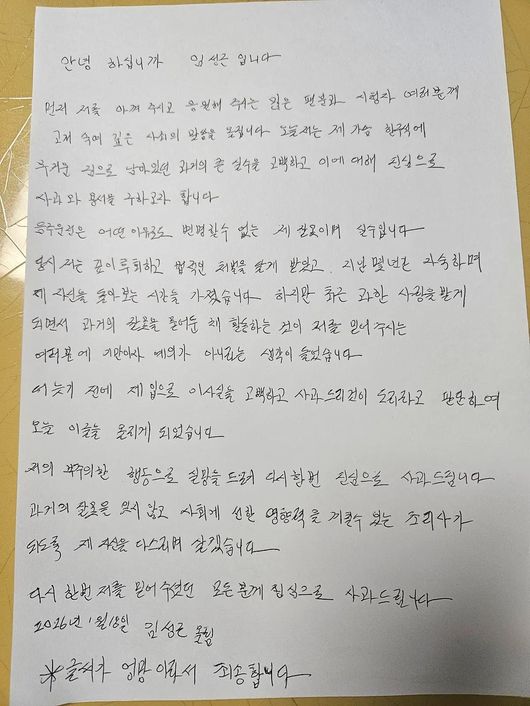 안녕 하십니까 임성근 입니다
먼저 저를 아껴 주시고 응원해 주시는 많은 팬분과 시청자 여러분께
고개 숙여 깊은 사죄의 말씀을 올립니다 오늘 저는 제 가슴 한구석에
무거운 짐으로 남아있던 과거의 큰 실수를 고백하고 이에 대해 진심으로
사과와 용서를 구하고자 합니다
음주운전은 어떤 이유로도 변명할수 없는 제 잘못이며 실수입니다
당시 저는 깊이 후회하고 법적인 처벌을 달게 받았고. 지난 몇년간 자숙하며
제 자신을 돌아보는 시간을 가졌습니다 하지만 최근 과한 사랑을 받게
되면서 과거의 잘못을 묻어둔 채 활동하는 것이 저를 믿어주시는
여러분에 기만이자 예의가 아니라는 생각이 들었습니다
더 늦기 전에 제입으로 이사실을 고백하고 사과드리것이 도리라고 판단하여
오늘 이글을 올리게 되었습니다
저의 부주의한 행동으로 실망을 드려 다시한번 진심으로 사과드립니다
과거의 잘못을 잊지 않고 사회에 선한 영향력을 끼칠수 있는 조리사가
되도록 제 자신을 다스리며 살겠습니다
다시 한번 저를 믿어 주셨던 모든분께 진심으로 사과드립니다
2026년 1월 18일 임성근 올림
※글씨가 엉망이라서 죄송합니다